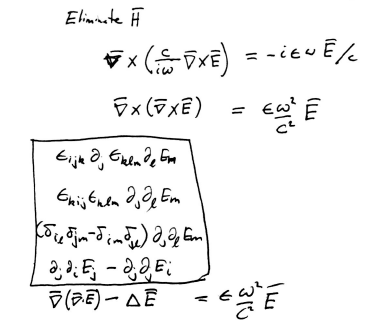 Eliminate H̄
∇̄ × (c/iω ∇̄×Ē) = -iεω Ē/c
∇̄×(∇̄×Ē) = εω²/c² Ē
ϵijk ∂j ϵklm ∂l Em
ϵkij ϵklm ∂j ∂l Em
(δil δjm - δim δjl) ∂j ∂l Em
∂j ∂i Ej - ∂j ∂j Ei
∇̄(∇̄·Ē) - ΔĒ = ε ω²/c² Ē